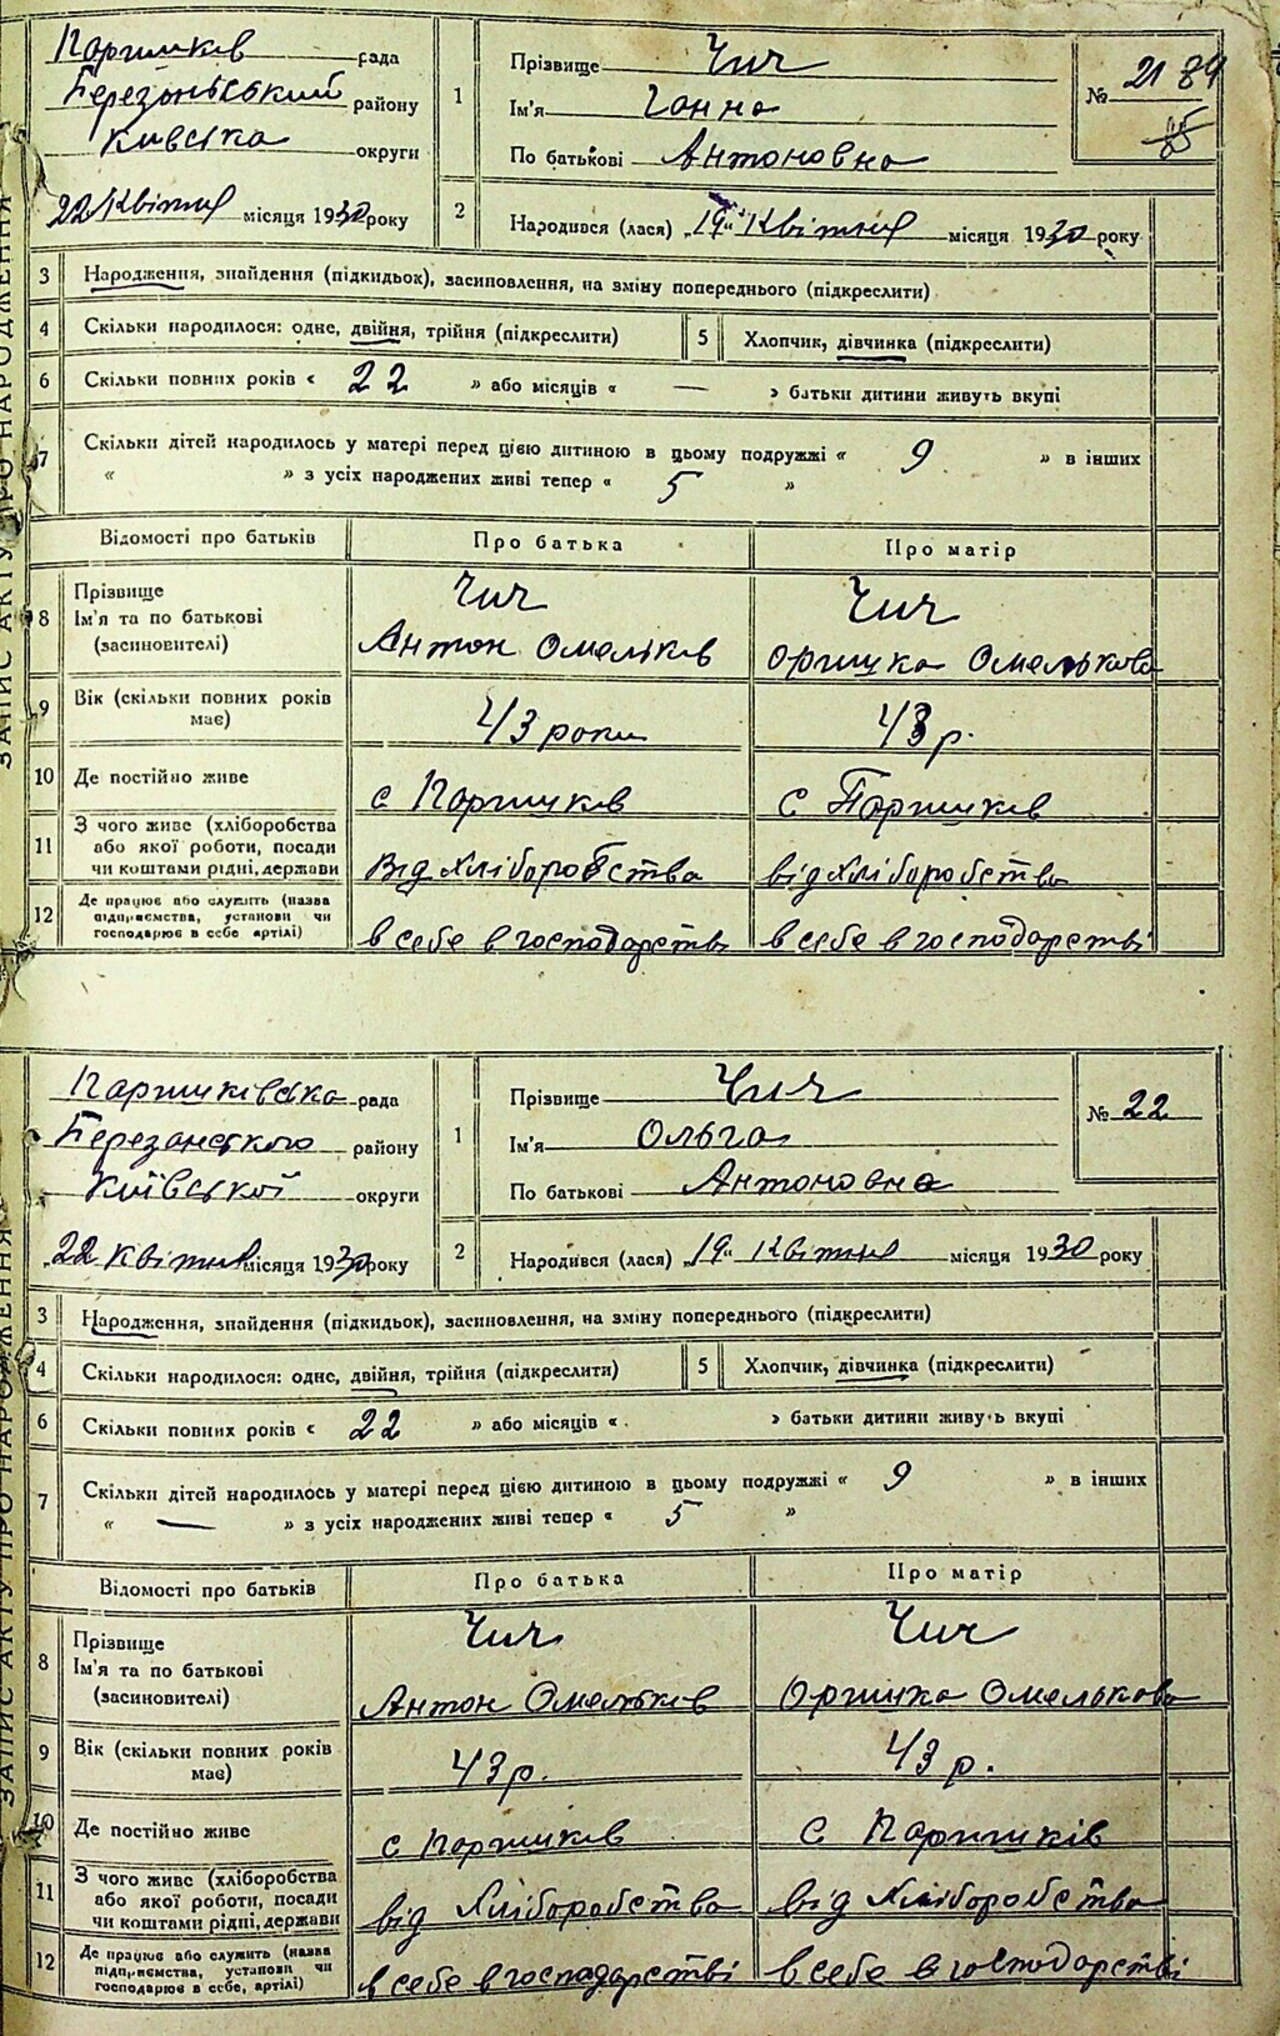 ЗАПИС АКТУ ПРО НАРОДЖЕННЯ
Паришков рада
Березаньський району
Киівська округи
22 Квітня місяця 1930 року
1
Прізвище Чич
Ім'я Ганна
По батькові Антоновна
№ 21 84
85
2
Народився (лася) „19“ Квітня місяця 1930 року
3 Народження, знайдення (підкидьок), засиновлення, на зміну попереднього (підкреслити)
4 Скільки народилося: одне, двійня, трійня (підкреслити) 5 Хлопчик, дівчинка (підкреслити)
6 Скільки повних років « 22 » або місяців « — » батьки дитини живуть вкупі
7 Скільки дітей народилось у матері перед цією дитиною в цьому подружжі « 9 » в інших
« » з усіх народжених живі тепер « 5 »
Відомості про батьків Про батька Про матір
8 Прізвище Ім'я та по батькові (засиновителі) Чич Антон Омельков Чич Оришка Омелькова
9 Вік (скільки повних років має) 43 роки 43 р.
10 Де постійно живе с Паришков с Паришков
11 З чого живе (хліборобства або якої роботи, посади чи коштами рідні, держави Від Хліборобства від Хліборобства
12 Де працює або служить (назва підприємства, установи чи господарює в себе артілі) в себе в господарстві в себе в господарстві
ЗАПИС АКТУ ПРО НАРОДЖЕННЯ
Паришківська рада
Березанського району
Київської округи
„22 Квітня місяця 1930 року
1
Прізвище Чич
Ім'я Ольга
По батькові Антоновна
№ 22
2
Народився (лася) „19“ Квітня місяця 1930 року
3 Народження, знайдення (підкидьок), засиновлення, на зміну попереднього (підкреслити)
4 Скільки народилося: одне, двійня, трійня (підкреслити) 5 Хлопчик, дівчинка (підкреслити)
6 Скільки повних років « 22 » або місяців « » батьки дитини живуть вкупі
7 Скільки дітей народилось у матері перед цією дитиною в цьому подружжі « 9 » в інших
« — » з усіх народжених живі тепер « 5 »
Відомості про батьків Про батька Про матір
8 Прізвище Ім'я та по батькові (засиновителі) Чич Антон Омельков Чич Оришка Омелькова
9 Вік (скільки повних років має) 43 р. 43 р.
10 Де постійно живе с Паришков с Паришків
11 З чого живе (хліборобства або якої роботи, посади чи коштами рідні, держави від Хліборобства від Хліборобства
12 Де працює або служить (назва підприємства, установи чи господарює в себе, артілі) в себе в господарстві в себе в господарстві